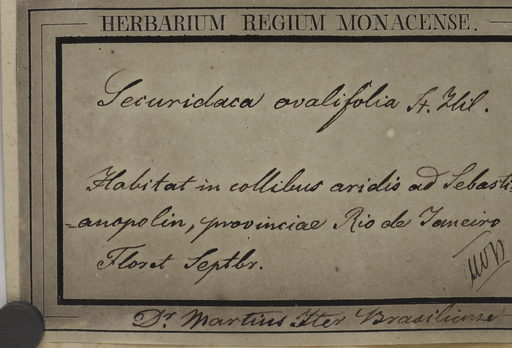 HERBARIUM REGIUM MONACENSE.
Securidaca ovalifolia St. Hil.
Habitat in collibus aridis ad Sebasti=
=anopolin, provinciae Rio de Janeiro
Floret Septbr.
Dr. Martius Iter Brasiliense